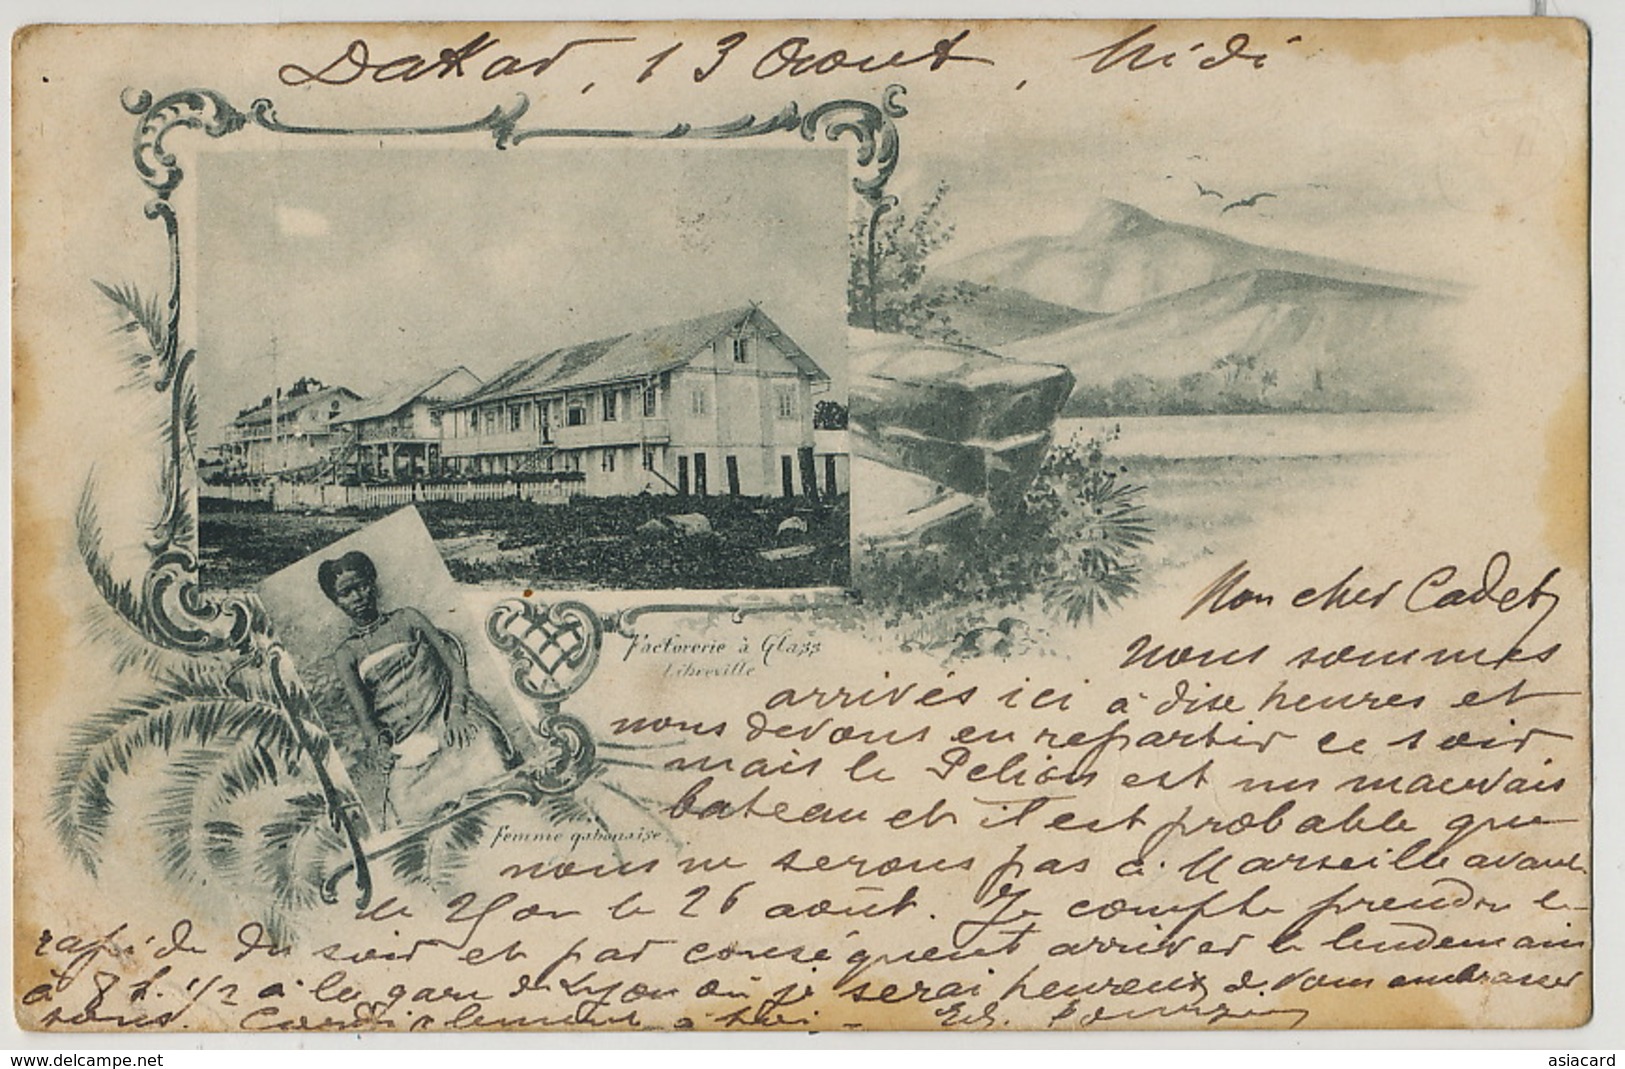 Dakar, 13 Aout, Midi
Factorerie à Glass
Libreville
Femme gabonaise
Mon cher Cadet,
Nous sommes
arrivés ici à dise heures et
nous devons en repartir ce soir
mais le Pélion est un mauvais
bateau et il est probable que
nous ne serons pas à Marseille avant
le 25 ou le 26 août. Je compte prendre le
rapide du soir et par conséquent arriver le lendemain
à 8 h. 1/2 à la gare de Lyon où je serai heureux de vous embrasser
tous. Cordialement à toi -
delcampe.net
asiacard